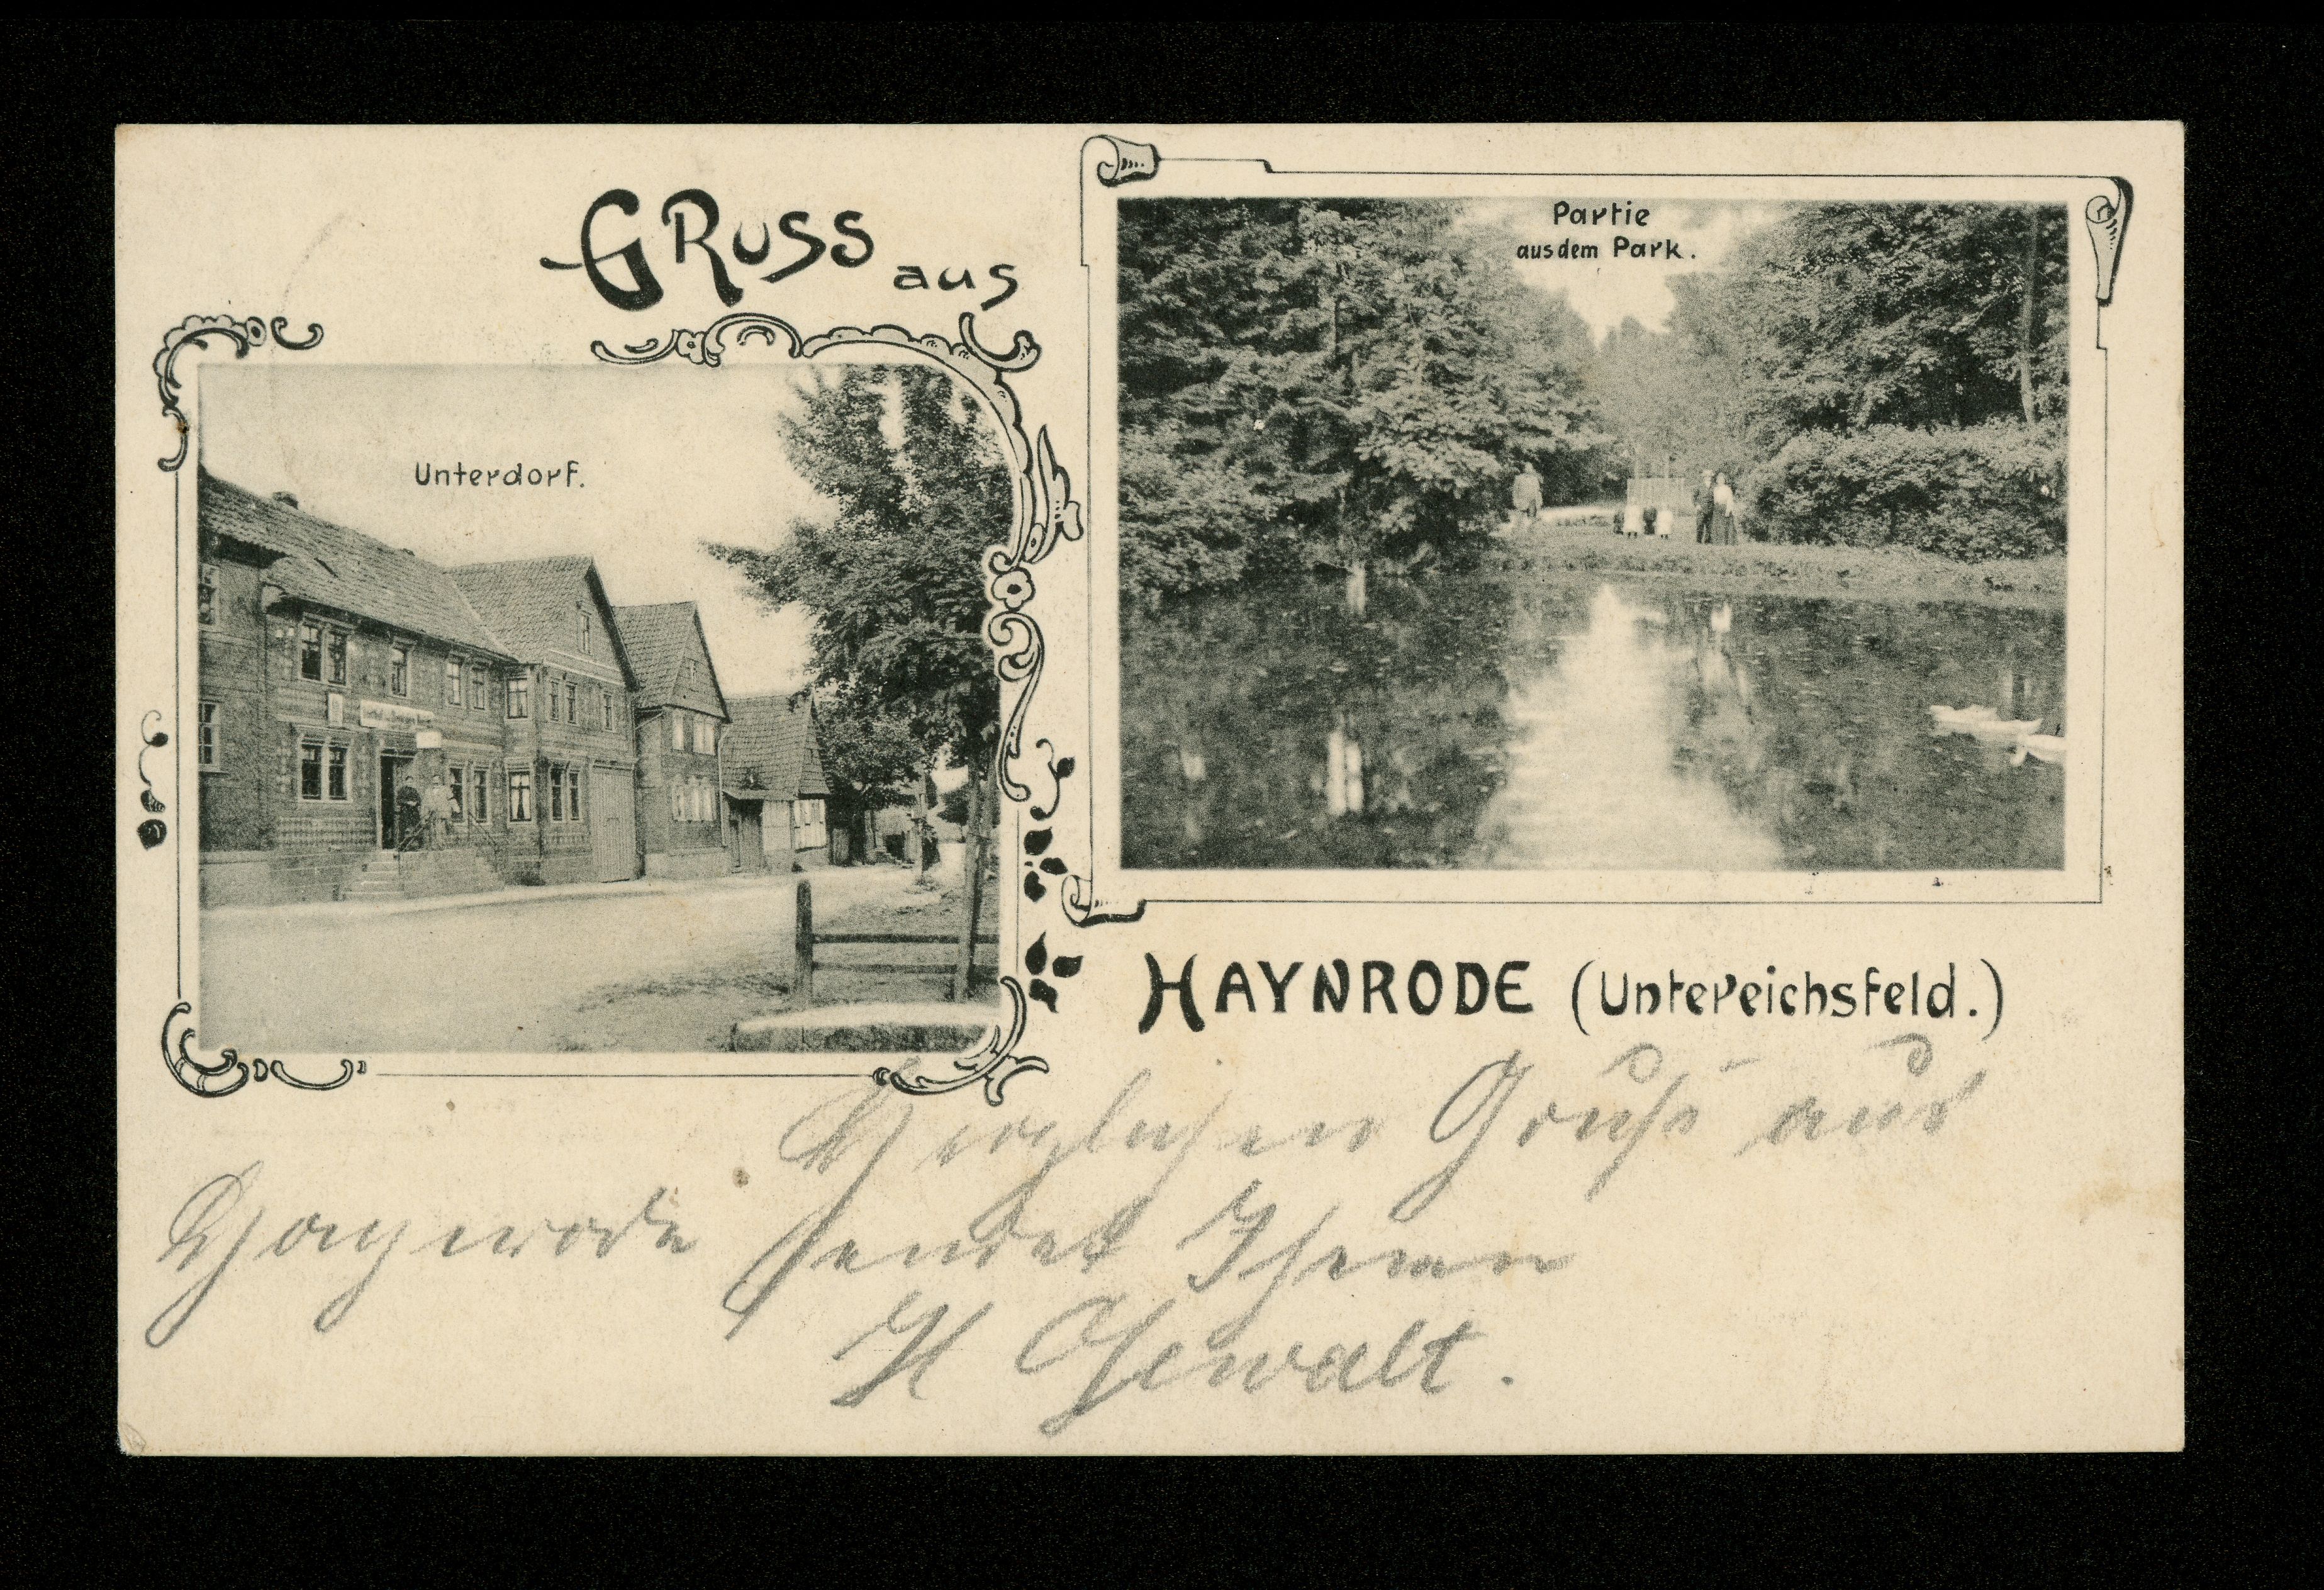 GRUSS aus
Unterdorf.
Partie
aus dem Park.
HAYNRODE (Untereichsfeld.)
Herzlichen Gruß aus
Haynrode sendet Ihnen
H Gewalt.